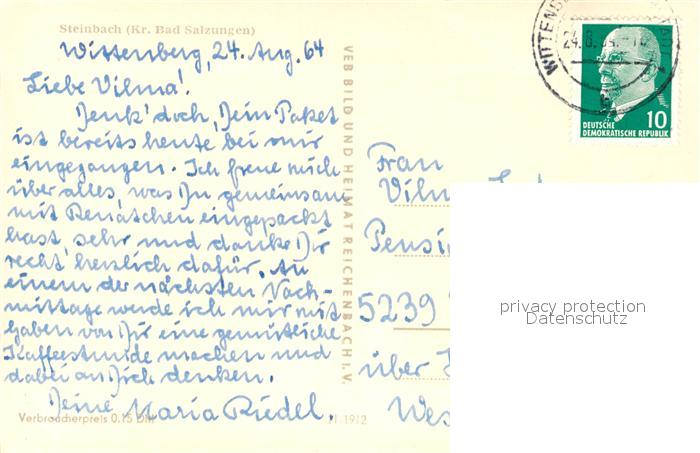 Steinbach (Kr. Bad Salzungen)
Wittenberg, 24. Aug. 64
Liebe Vilma!
Denk' doch, Dein Paket
ist bereits heute bei mir
eingegangen. Ich freue mich
über alles, was Du gemeinsam
mit Renatchen eingepackt
hast, sehr und danke Dir
recht herzlich dafür. An
einem der nächsten Nach-
mittage werde ich mir mit
Gaben von Dir eine gemütliche
Kaffeestunde machen und
dabei an Dich denken.
Deine Maria Riedel.
Verbraucherpreis 0.15 DM
1912
VEB BILD UND HEIMAT REICHENBACH I. V.
10
DEUTSCHE
DEMOKRATISCHE REPUBLIK
Frau
5239
über
privacy protection
Datenschutz